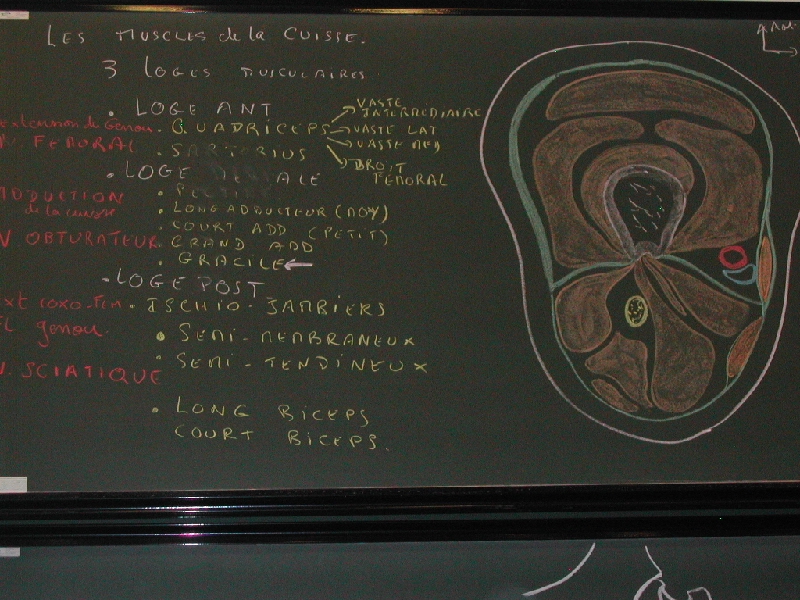 LES MUSCLES de la CUISSE.
3 LOGES MUSCULAIRES
• LOGE ANT
extension de Genou • QUADRICEPS
VASTE INTERMEDIAIRE
VASTE LAT
VASTE MED
DROIT FEMORAL
N FEMORAL • SARTORIUS
• LOGE
•
ADDUCTION de la cuisse • LONG ADDUCTEUR (MOY)
• COURT ADD (PETIT)
N OBTURATEUR • GRAND ADD
• GRACILE
• LOGE POST
Ext coxo-fem • ISCHIO-JAMBIERS
FL genou • SEMI-MEMBRANEUX
• SEMI-TENDINEUX
N. SCIATIQUE
• LONG BICEPS
COURT BICEPS.